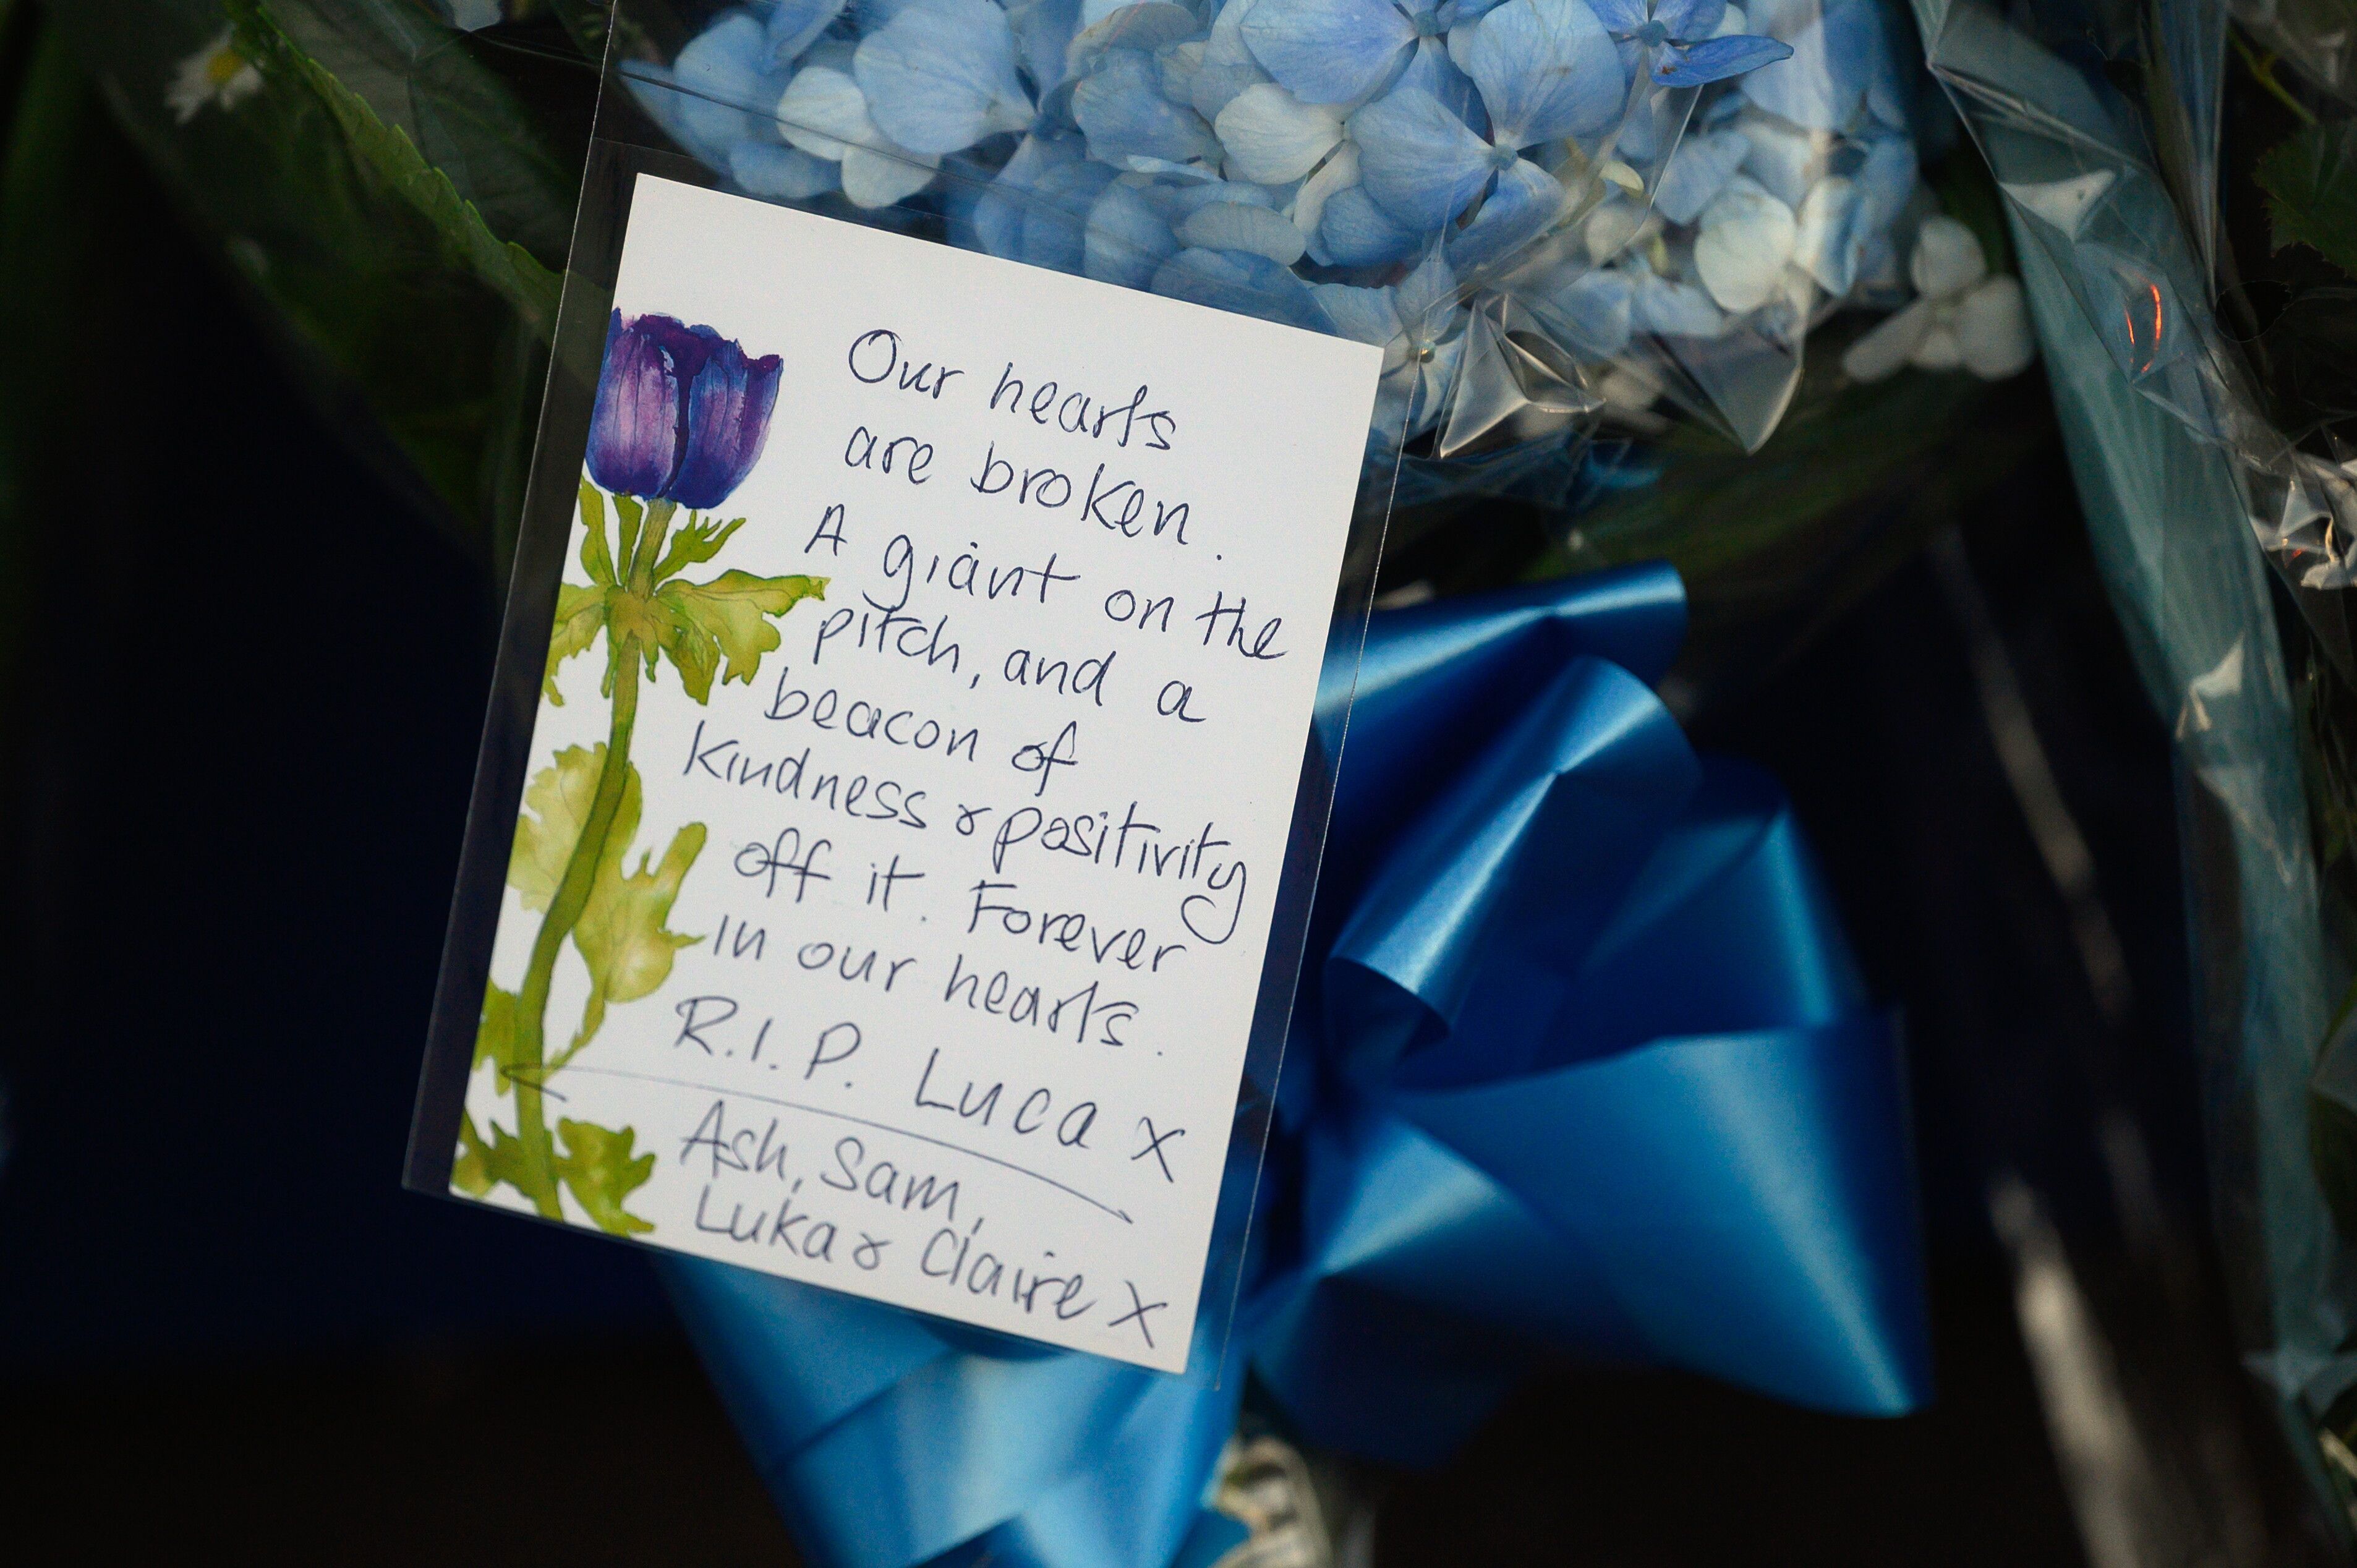 Our hearts
are broken.
A giant on the
pitch, and a
beacon of
kindness & positivity
off it. Forever
in our hearts.
R.I.P. Luca x
Ash, Sam,
Luka & Claire X